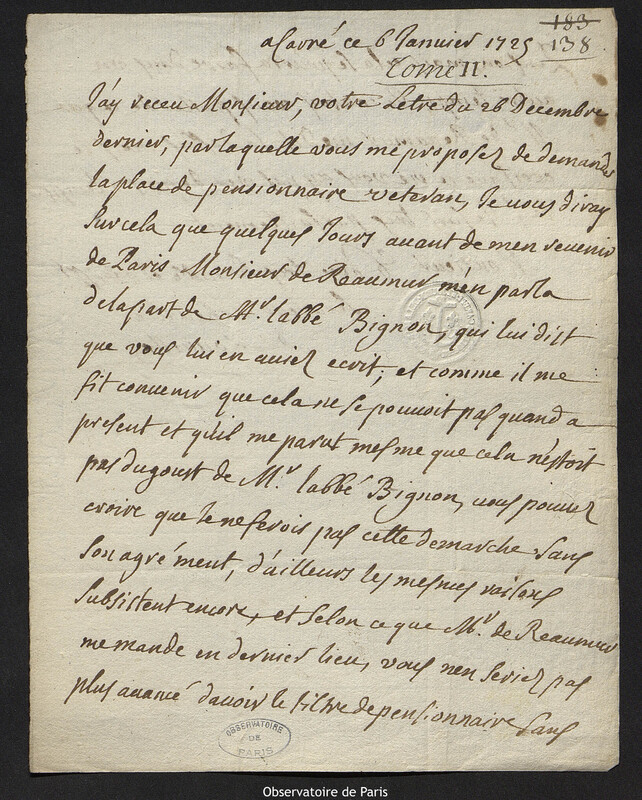 183
138
a Carré ce 6 Janvier 1725
Tome II.
J'ay receu Monsieur, votre Letre du 26 Decembre
dernier, par laquelle vous me proposez de demander
la place de pensionnaire veteran, Je vous diray
sur cela que quelques Jours avant de men revenir
de Paris Monsieur de Reaumur m'en parla
de la part de Mr. labbé Bignon, qui lui dist
que vous lui en aviez ecrit; et comme il me
fit convenir que cela ne se pouvoit pas quand a
present et qu'il me parut mesme que cela n'estoit
pas du goust de Mr. labbé Bignon, vous pouvez
croire que Je ne ferois pas cette demarche sans
son agrément, d'ailleurs les mesmes raisons
subsistent encore, et selon ce que Mr. de Reaumur
me mande en dernier lieu, vous n'en seriez pas
plus avancé d'avoir le tiltre de pensionnaire sans
OBSERVATOIRE
DE
PARIS
Observatoire de Paris